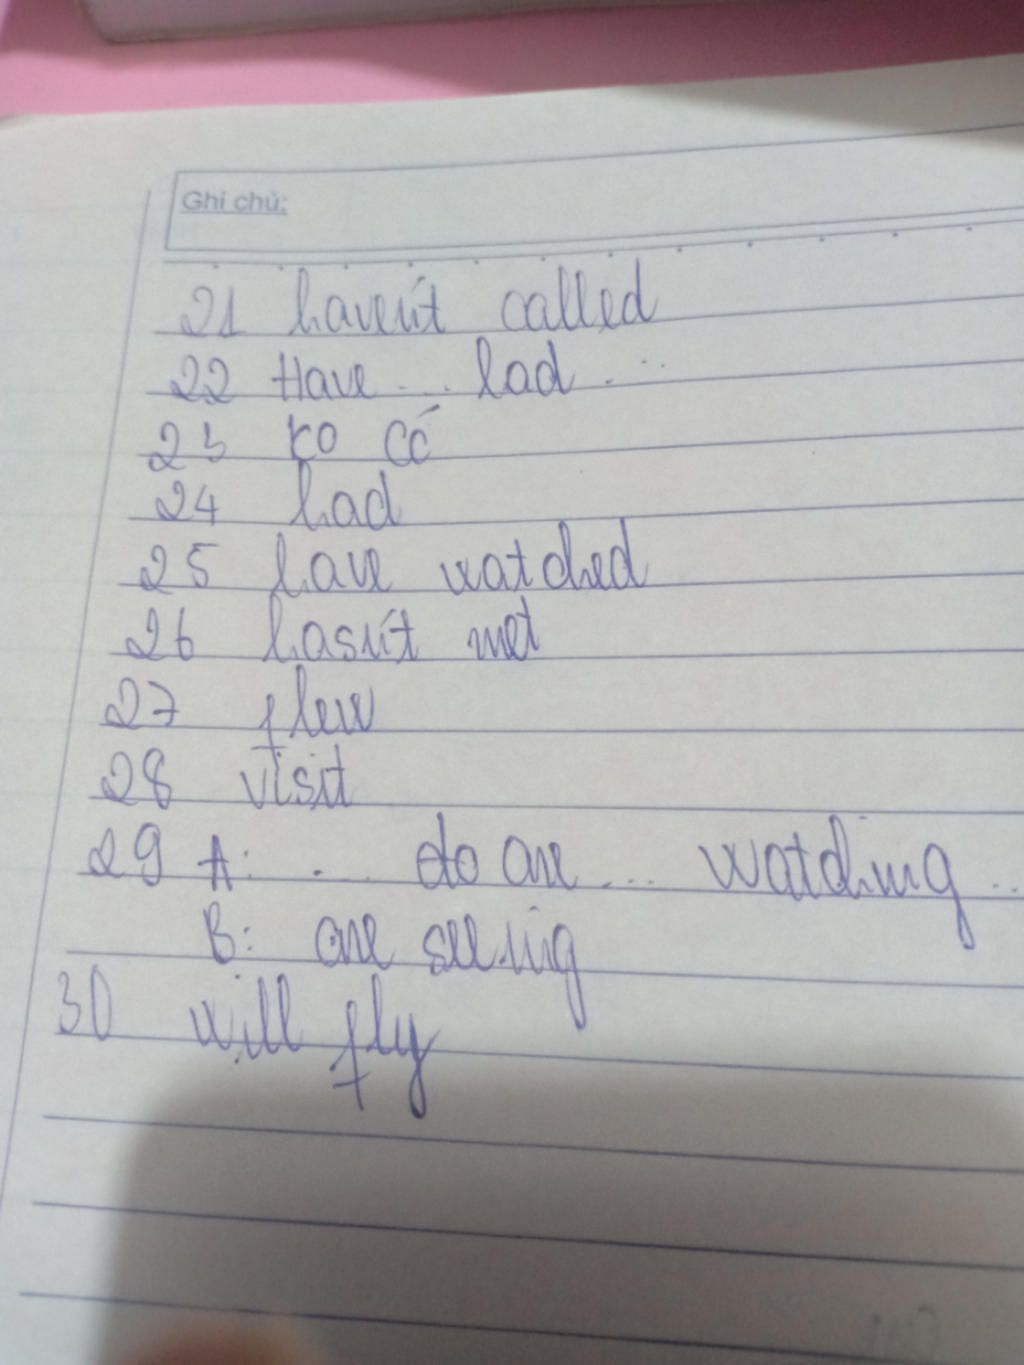 Ghi chú:
21 haven't called
22 Have ... had ...
23 ko có
24 had
25 have watched
26 hasn't met
27 flew
28 visit
29 A: ... do are ... watching ...
B: are seeing
30 will fly